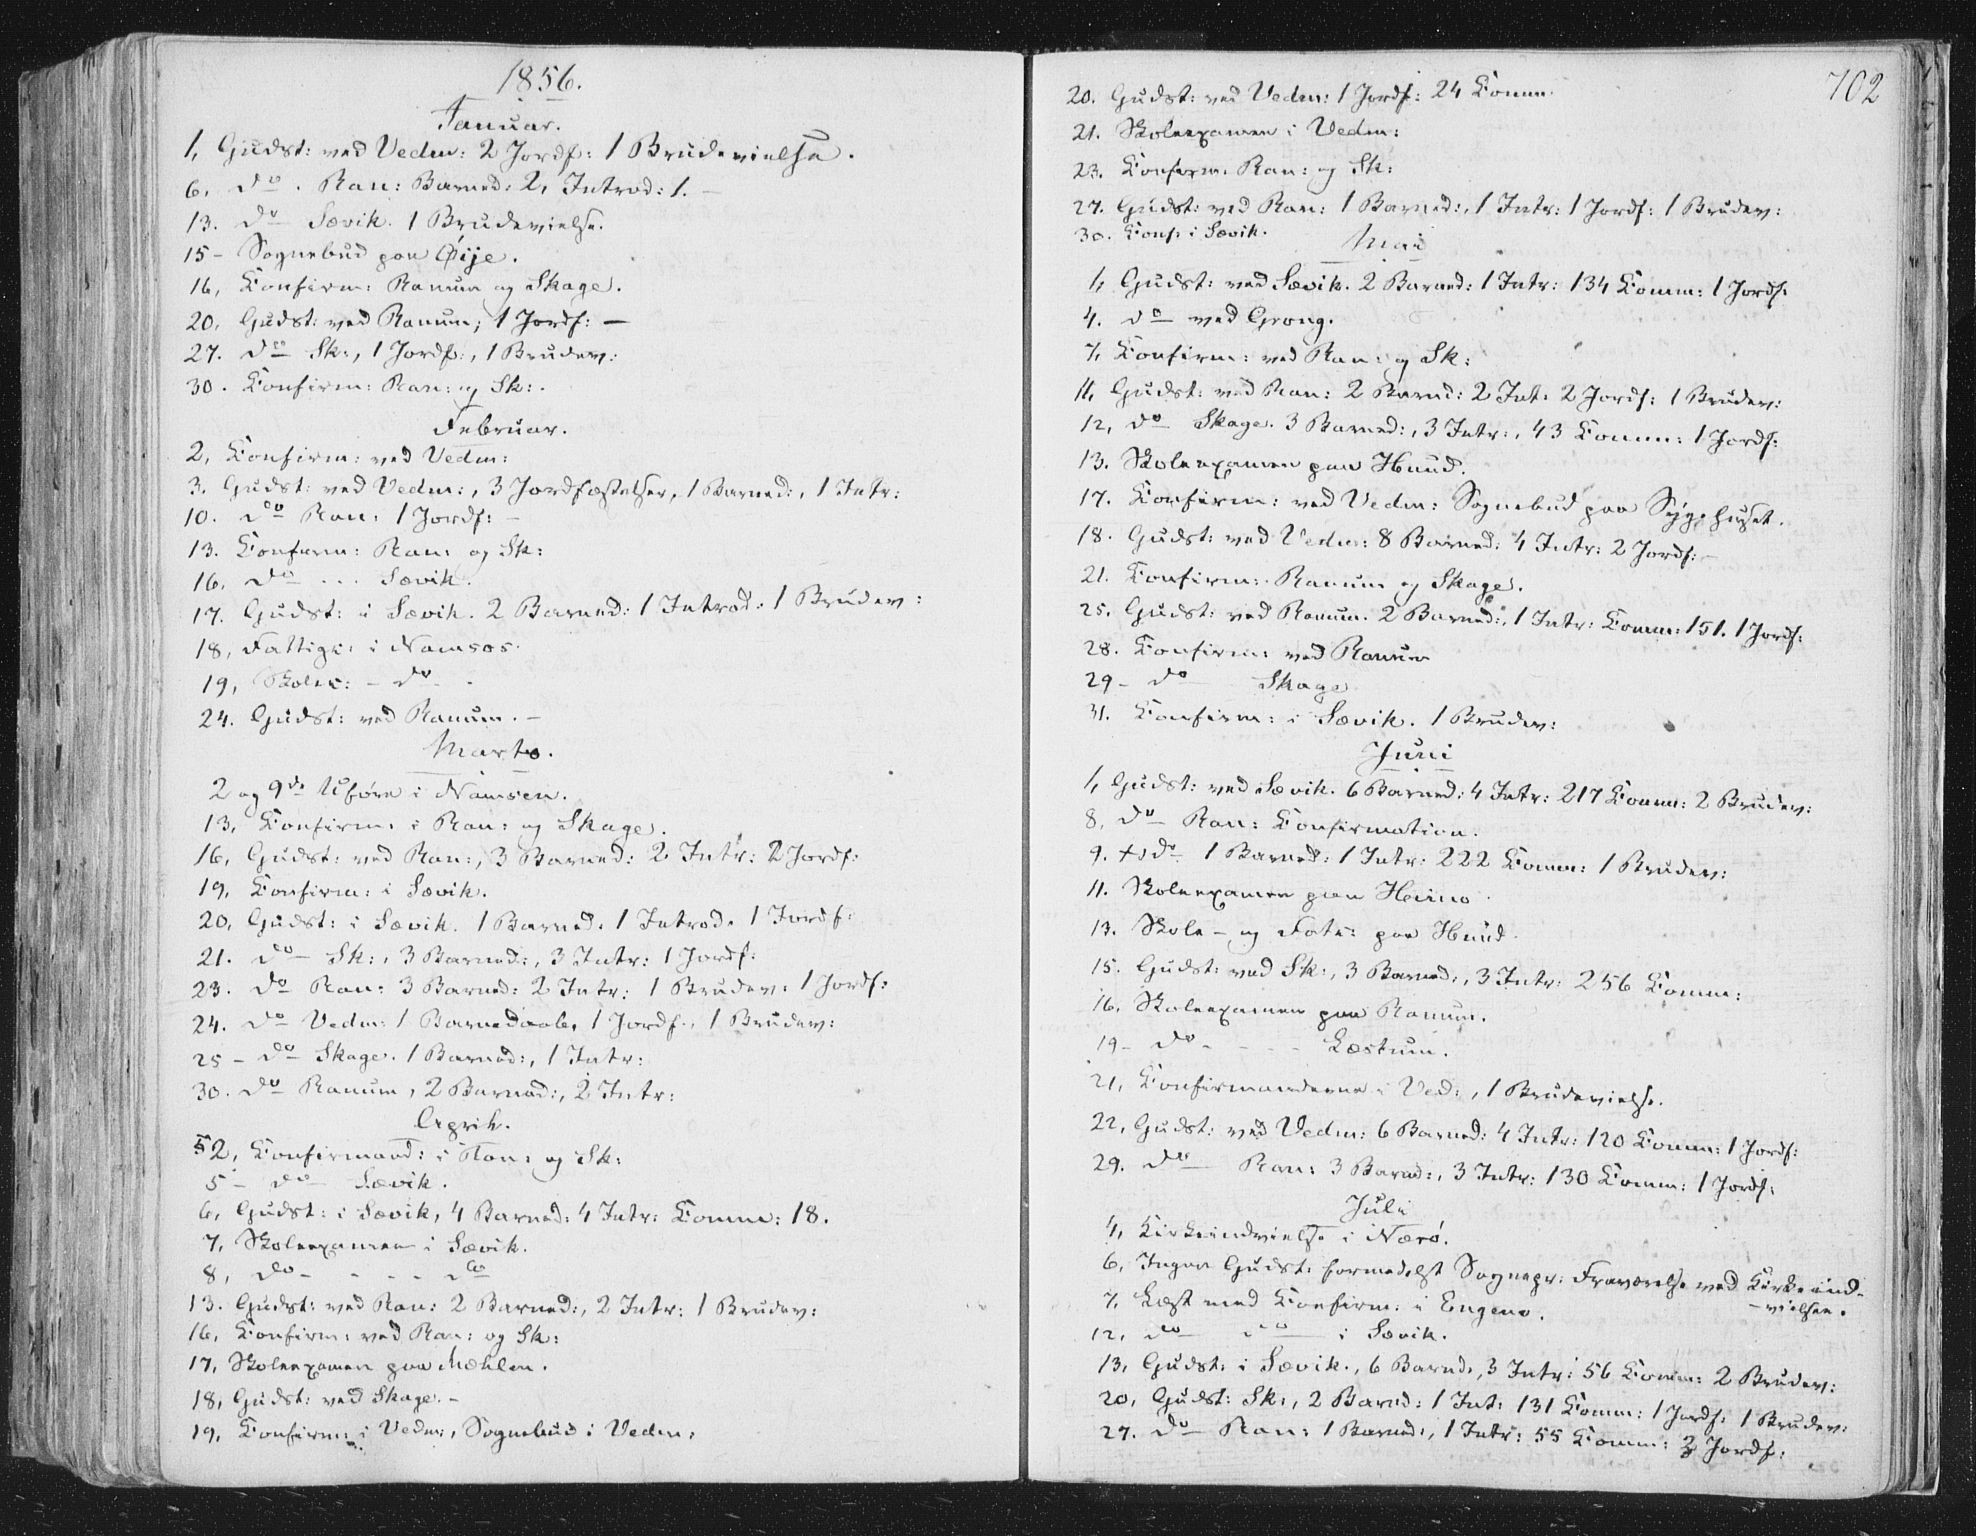 1856.
Januar.
1, Gudst: ved Vedm: 2 Jordf: 1 Brudevielse.
6, do. Ran: Barned: 2, Introd: 1. -
13. do Sævik. 1 Brudevielse.
15 - Sognebud paa Øije.
16, Confirm: Ranum og Skage.
20, Gudst: ved Ranum; 1 Jordf: -
27. do Sk:, 1 Jordf:, 1 Brudev:
30. Confirm: Ran: og Sk:.
Februar.
2, Confirm: ved Vedm:
3. Gudst: ved Vedm:, 3 Jordfæstelser, 1 Barned:, 1 Intr:
10. do Ran: 1 Jordf: -
13. Confirm: Ran: og Sk:
16, do ... Sævik.
17. Gudst: i Sævik. 2 Barned: 1 Introd: 1 Brudev:
18, Fattigk: i Namsos.
19, Skolek: - do -
24. Gudst: ved Ranum. -
Marts.
2 og 9de Uføre i Namsen.
13, Confirm: i Ran: og Skage.
16, Gudst: ved Ran:, 3 Barned: 2 Intr: 2 Jordf:
19, Confirm: i Sævik.
20, Gudst: i Sævik. 1 Barned. 1 Introd. 1 Jordf:
21. do - Sk:, 3 Barned:, 3 Intr: 1 Jordf:
23. do Ran: 3 Barned: 2 Intr: 1 Brudev: 1 Jordf:
24. do Vedm: 1 Barnedaab, 1 Jordf., 1 Brudev:
25 - do Skage. 1 Barned:, 1 Intr:
30. do Ranum, 2 Barned:, 2 Intr:
April.
2, Confirmand: i Ran: og Sk:
5 - do Sævik.
6, Gudst: i Sævik, 4 Barned: 4 Intr: Comm: 18.
7, Skoleexamen i Sævik.
8, do - - - - do
13. Gudst: ved Ran: 2 Barned:, 2 Intr: 1 Brudev:
16, Confirm: ved Ran: og Sk:
17, Skoleexamen paa Mæhlen.
18, Gudst: ved Skage. -
19, Confirm: i Vedm:, Sognebud i Vedm:
702
20. Gudst: ved Vedm: 1 Jordf: 24 Comm.
21. Skoleexamen i Vedm:
23. Confirm. Ran: og Sk:
27. Gudst: ved Ran: 1 Barned:, 1 Intr: 1 Jordf: 1 Brudev:
30. Conf: i Sævik.
Mai
1, Gudst: ved Sævik. 2 Barned: 1 Intr: 134 Comm: 1 Jordf:
4. do ved Grong.
7, Confirm: ved Ran: og Sk:
11, Gudst: ved Ran: 2 Barnd: 2 Int: 2 Jordf: 1 Brudev:
12, do Skage. 3 Barned:, 3 Intr:, 43 Comm: 1 Jordf:
13. Skoleexamen paa Hund.
17. Confirm: ved Vedm: Sognebud paa Sygehuset.
18. Gudst: ved Vedm: 8 Barned: 4 Intr: 2 Jordf: -
21. Confirm: Ranum og Skage.
25. Gudst: ved Ranum. 2 Barned:, 1 Intr: Comm: 151. 1 Jordf:
28. Confirm: ved Ranum
29 - do Skage
31. Confirm: i Sævik. 1 Brudev:
Juni
1, Gudst: ved Sævik. 6 Barned: 4 Intr: 217 Comm: 2 Brudev:
8, do Ran: Confirmation.
9. do 1 Barned: 1 Intr: 222 Comm: 1 Brudev:
11. Skoleexamen paa Heimo.
13. Skole - og Fatt: paa Hund.
15. Gudst: ved Sk:, 3 Barned:, 3 Intr: 256 Comm:
16. Skoleexamen paa Ranum.
19 - do - - - - Læstum.
21, Confirmanderne i Ved:, 1 Brudevielse.
22, Gudst: ved Vedm: 6 Barned: 4 Intr: 120 Comm: 1 Jordf:
29. do Ran: 3 Barnd:, 3 Intr: 130 Comm: 1 Jordf:
Juli
4, Kirkeindvielse i Nærö.
6, Ingen Gudst: formedelst Sognepr: Fraværelse ved Kirkeind-
-vielsen.
7, Læst med Confirm: i Engeno.
12, do do i Sævik.
13, Gudst: i Sævik., 6 Barnd:, 3 Intr: 56 Comm: 2 Brudev:
20, Gudst: Sk:, 2 Barnd: 1 Int: 131 Comm: 1 Jordf: 1 Brudev:
27. do Ran: 1 Barned:, 1 Intr: 55 Comm: 2 Jordf: